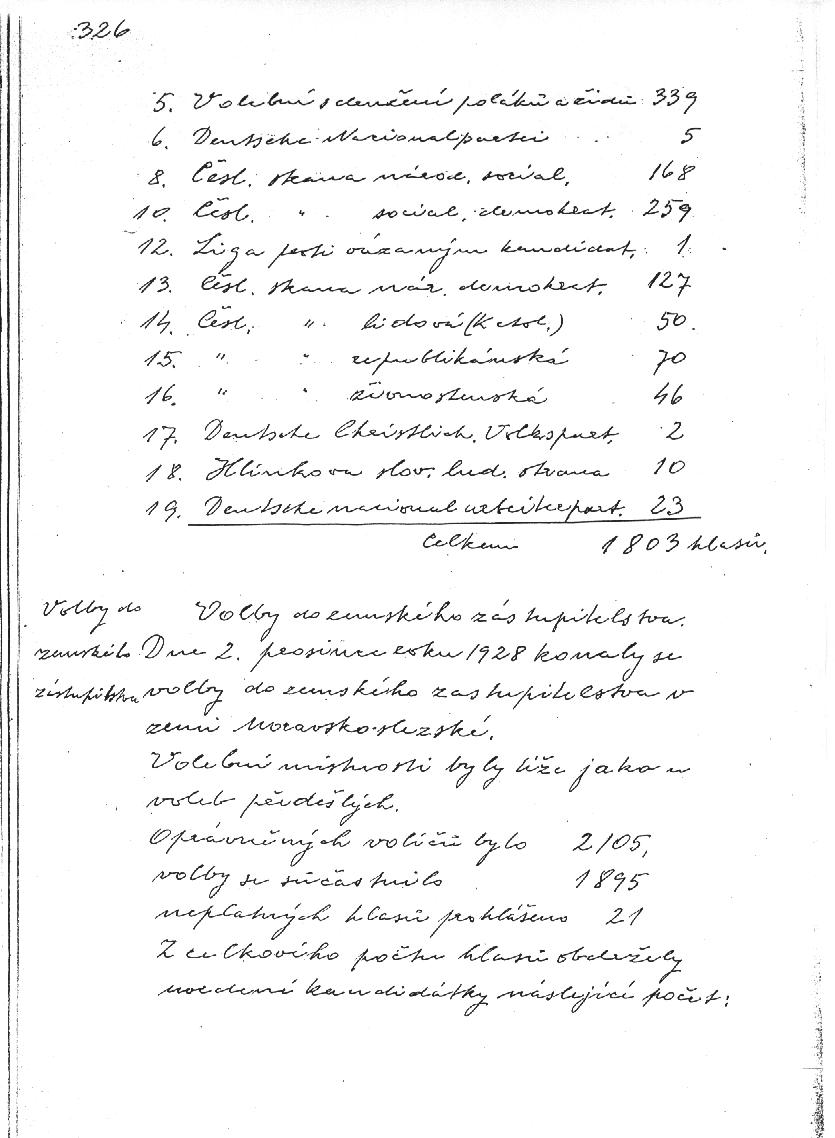 326
5. Volební sdružení poláků a židů 339
6. Deutsche Nacionalpartei . . 5
8. Čsl. strana národ. social. 168
10. Čsl. " social. demokrat. 259
12. Liga proti vázaným kandidát. 1
13. Čsl. strana nár. demokrat. 127
14. Čsl. " lidová (Katol.) 50.
15. " " republikánská 70
16. " " živnostenská 46
17. Deutsche Christlich. Volkspart. 2
18. Hlinkova slov. lud. strana 10
19. Deutsche nacional arbeiterpart. 23
Celkem 1803 hlasů.
Volby do zemského zástupitelstva
Volby do zemského zástupitelstva.
Dne 2. prosince roku 1928 konaly se
volby do zemského zastupitelstva v
zemi Moravsko-slezské.
Volební místnosti byly tíže jako u
voleb předešlých.
Oprávněných voličů bylo 2105,
volby se súčastnilo 1895
neplatných hlasů prohlášeno 21
Z celkového počtu hlasů obdržely
uvedené kandidátky násled­jící počet: